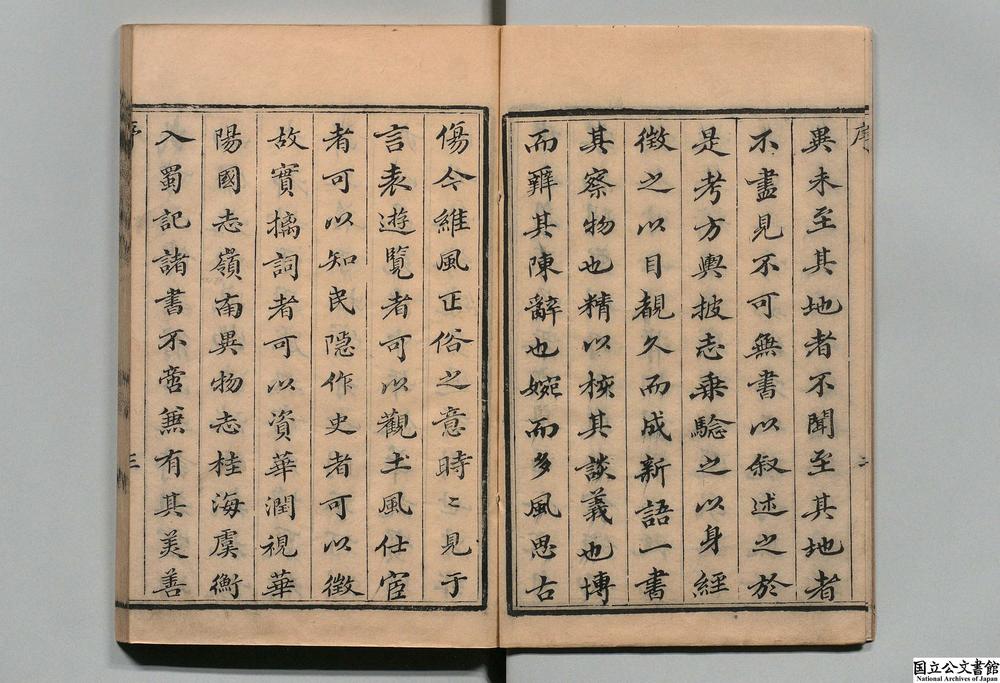 序
異未至其地者不聞至其地者
不盡見不可無書以叙述之於
是考方輿披志乗驗之以身經
徵之以目覩久而成新語一書
其察物也精以核其談義也博
而辨其陳辭也婉而多風思古
二
傷今維風正俗之意時〻見于
言表遊覽者可以觀土風仕宦
者可以知民隠作史者可以徵
故實摛詞者可以資華潤視華
陽國志嶺南異物志桂海虞衡
入蜀記諸書不啻兼有其美善
序
三
国立公文書館
National Archives of Japan